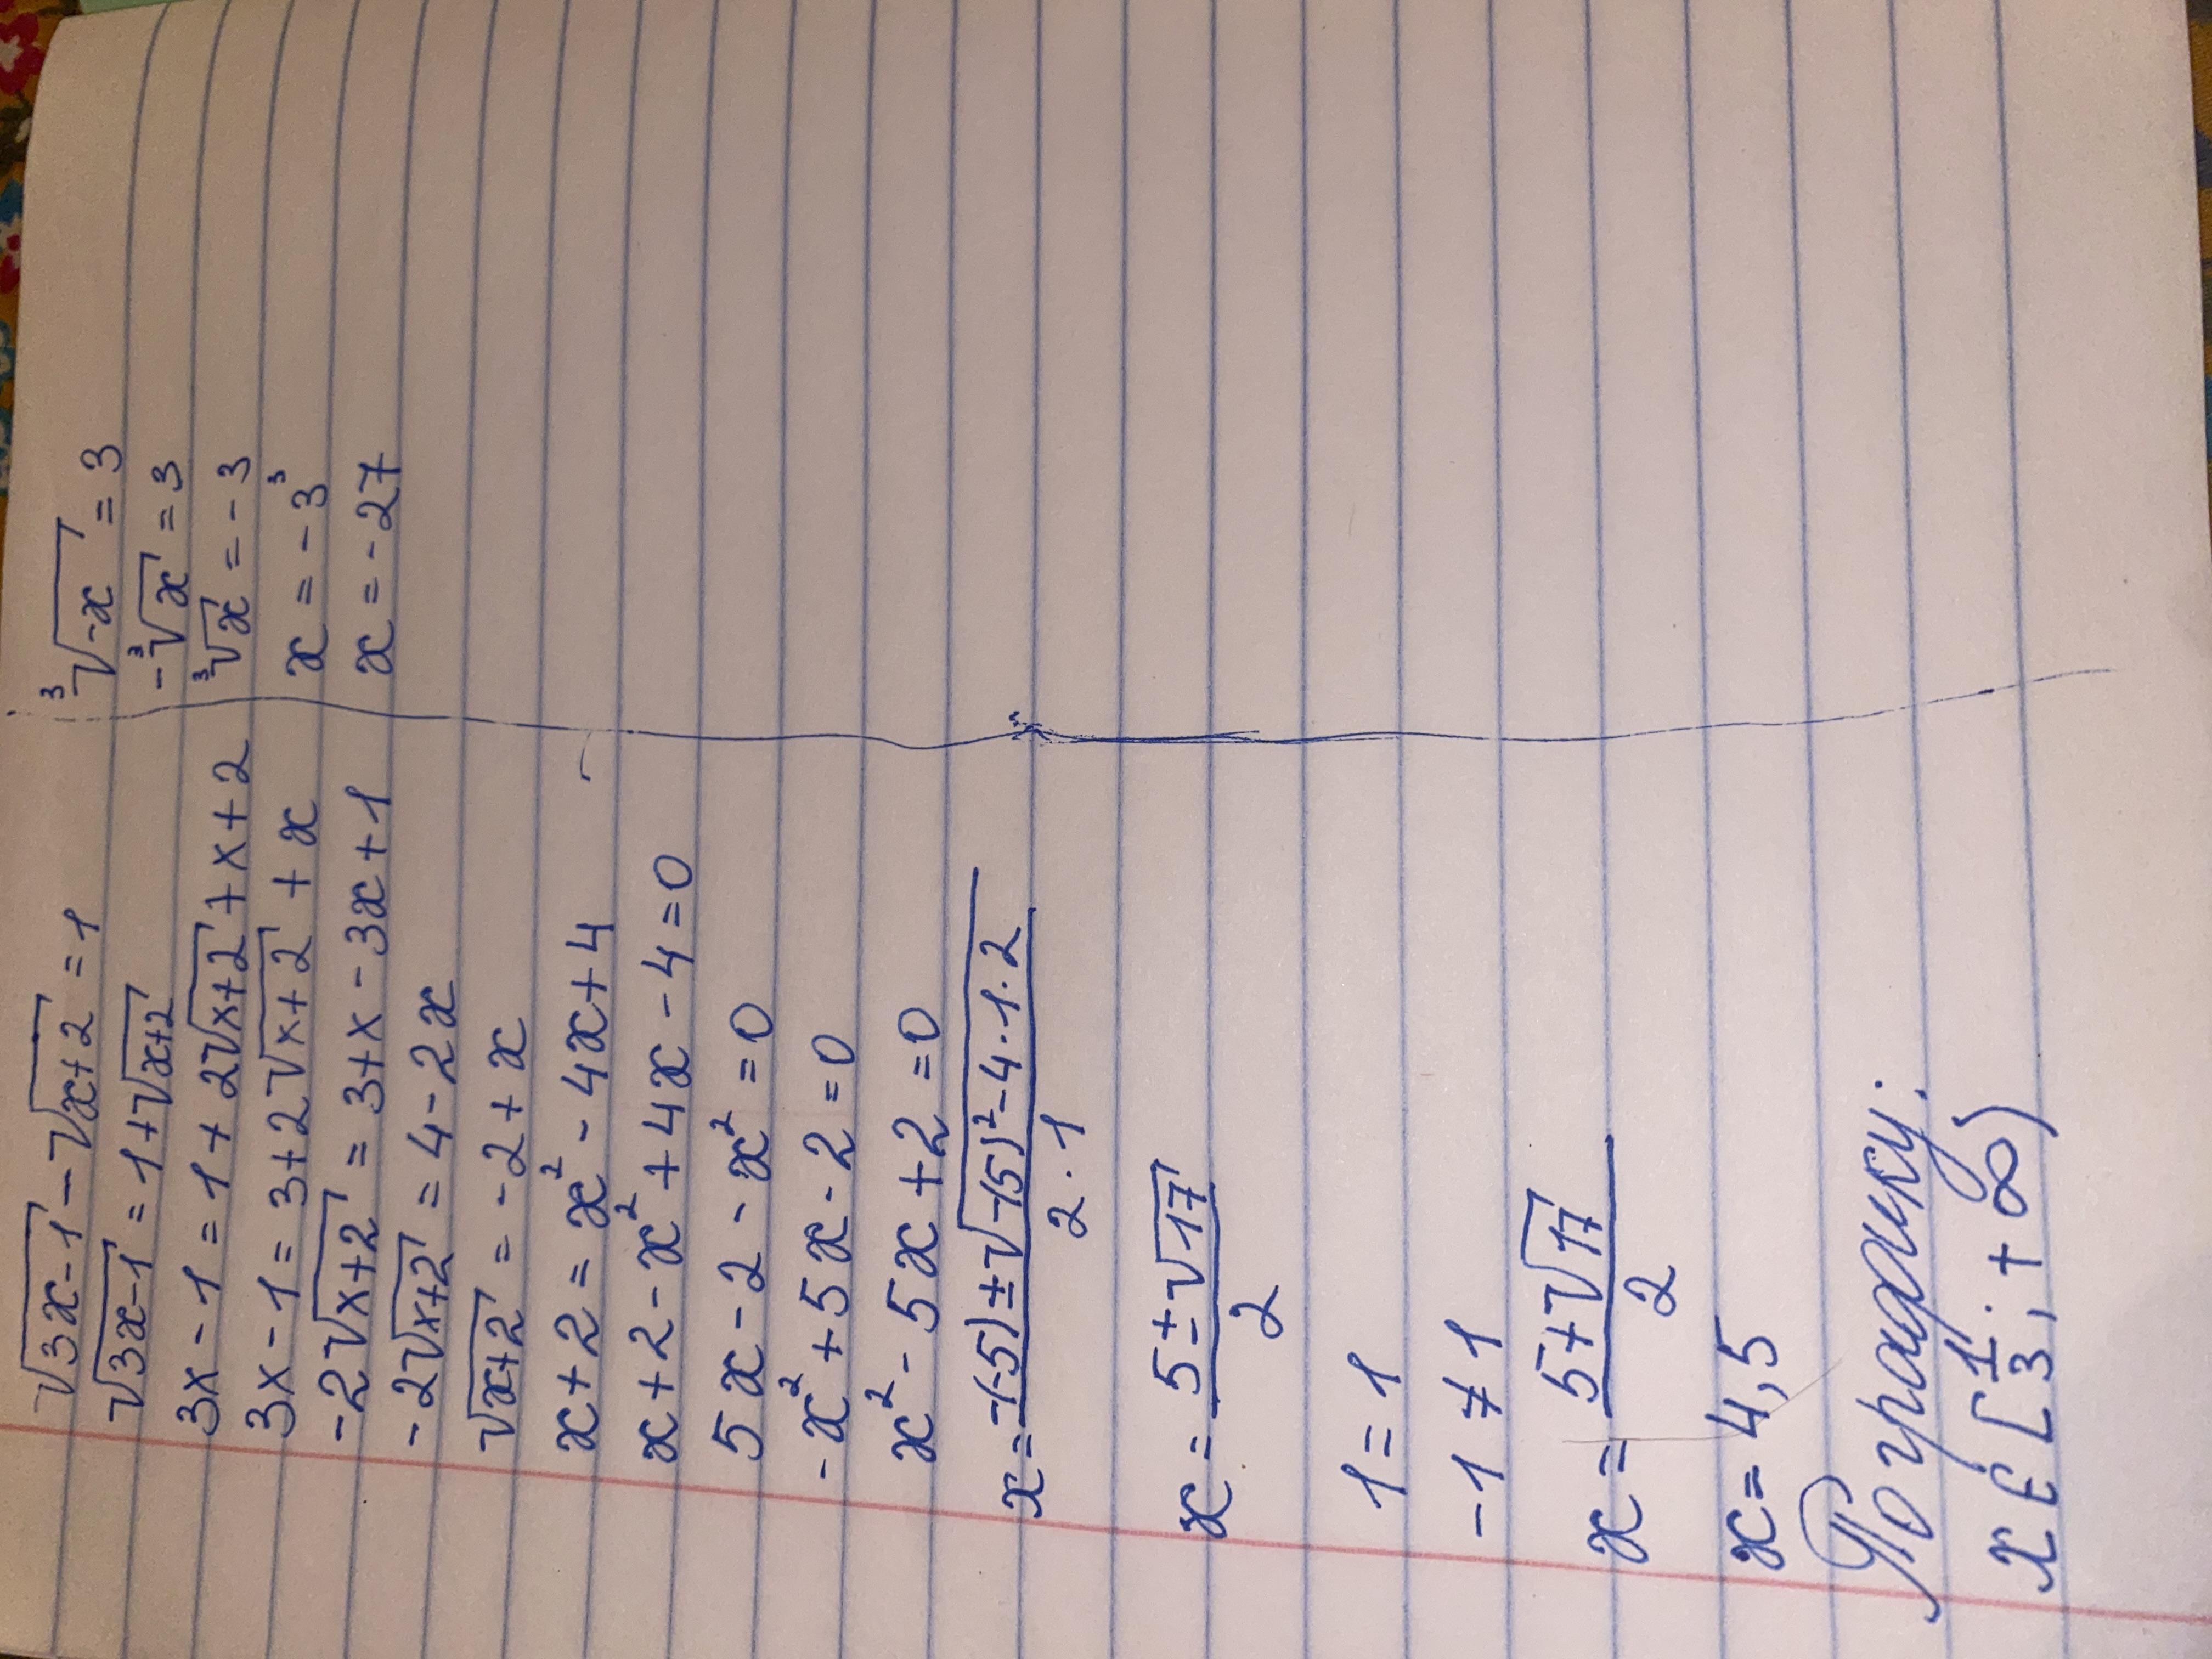 √3x-1 - √x+2 = 1
√3x-1 = 1+√x+2
3x-1 = 1+2√x+2 + x+2
3x-1 = 3+2√x+2 + x
-2√x+2 = 3+x-3x+1
-2√x+2 = 4-2x
√x+2 = -2+x
x+2 = x² - 4x+4
x+2-x²+4x-4=0
5x-2-x²=0
-x²+5x-2=0
x²-5x+2=0
x = -(-5)±√(-15)²-4·1·2 / 2·1
x = 5±√17 / 2
1=1
-1≠1
x = 5+√17 / 2
x=4,5
По графику:
x ∈ [1/3; +∞)
³√-x = 3
-³√x = 3
³√x = -3
x = -3³
x = -27